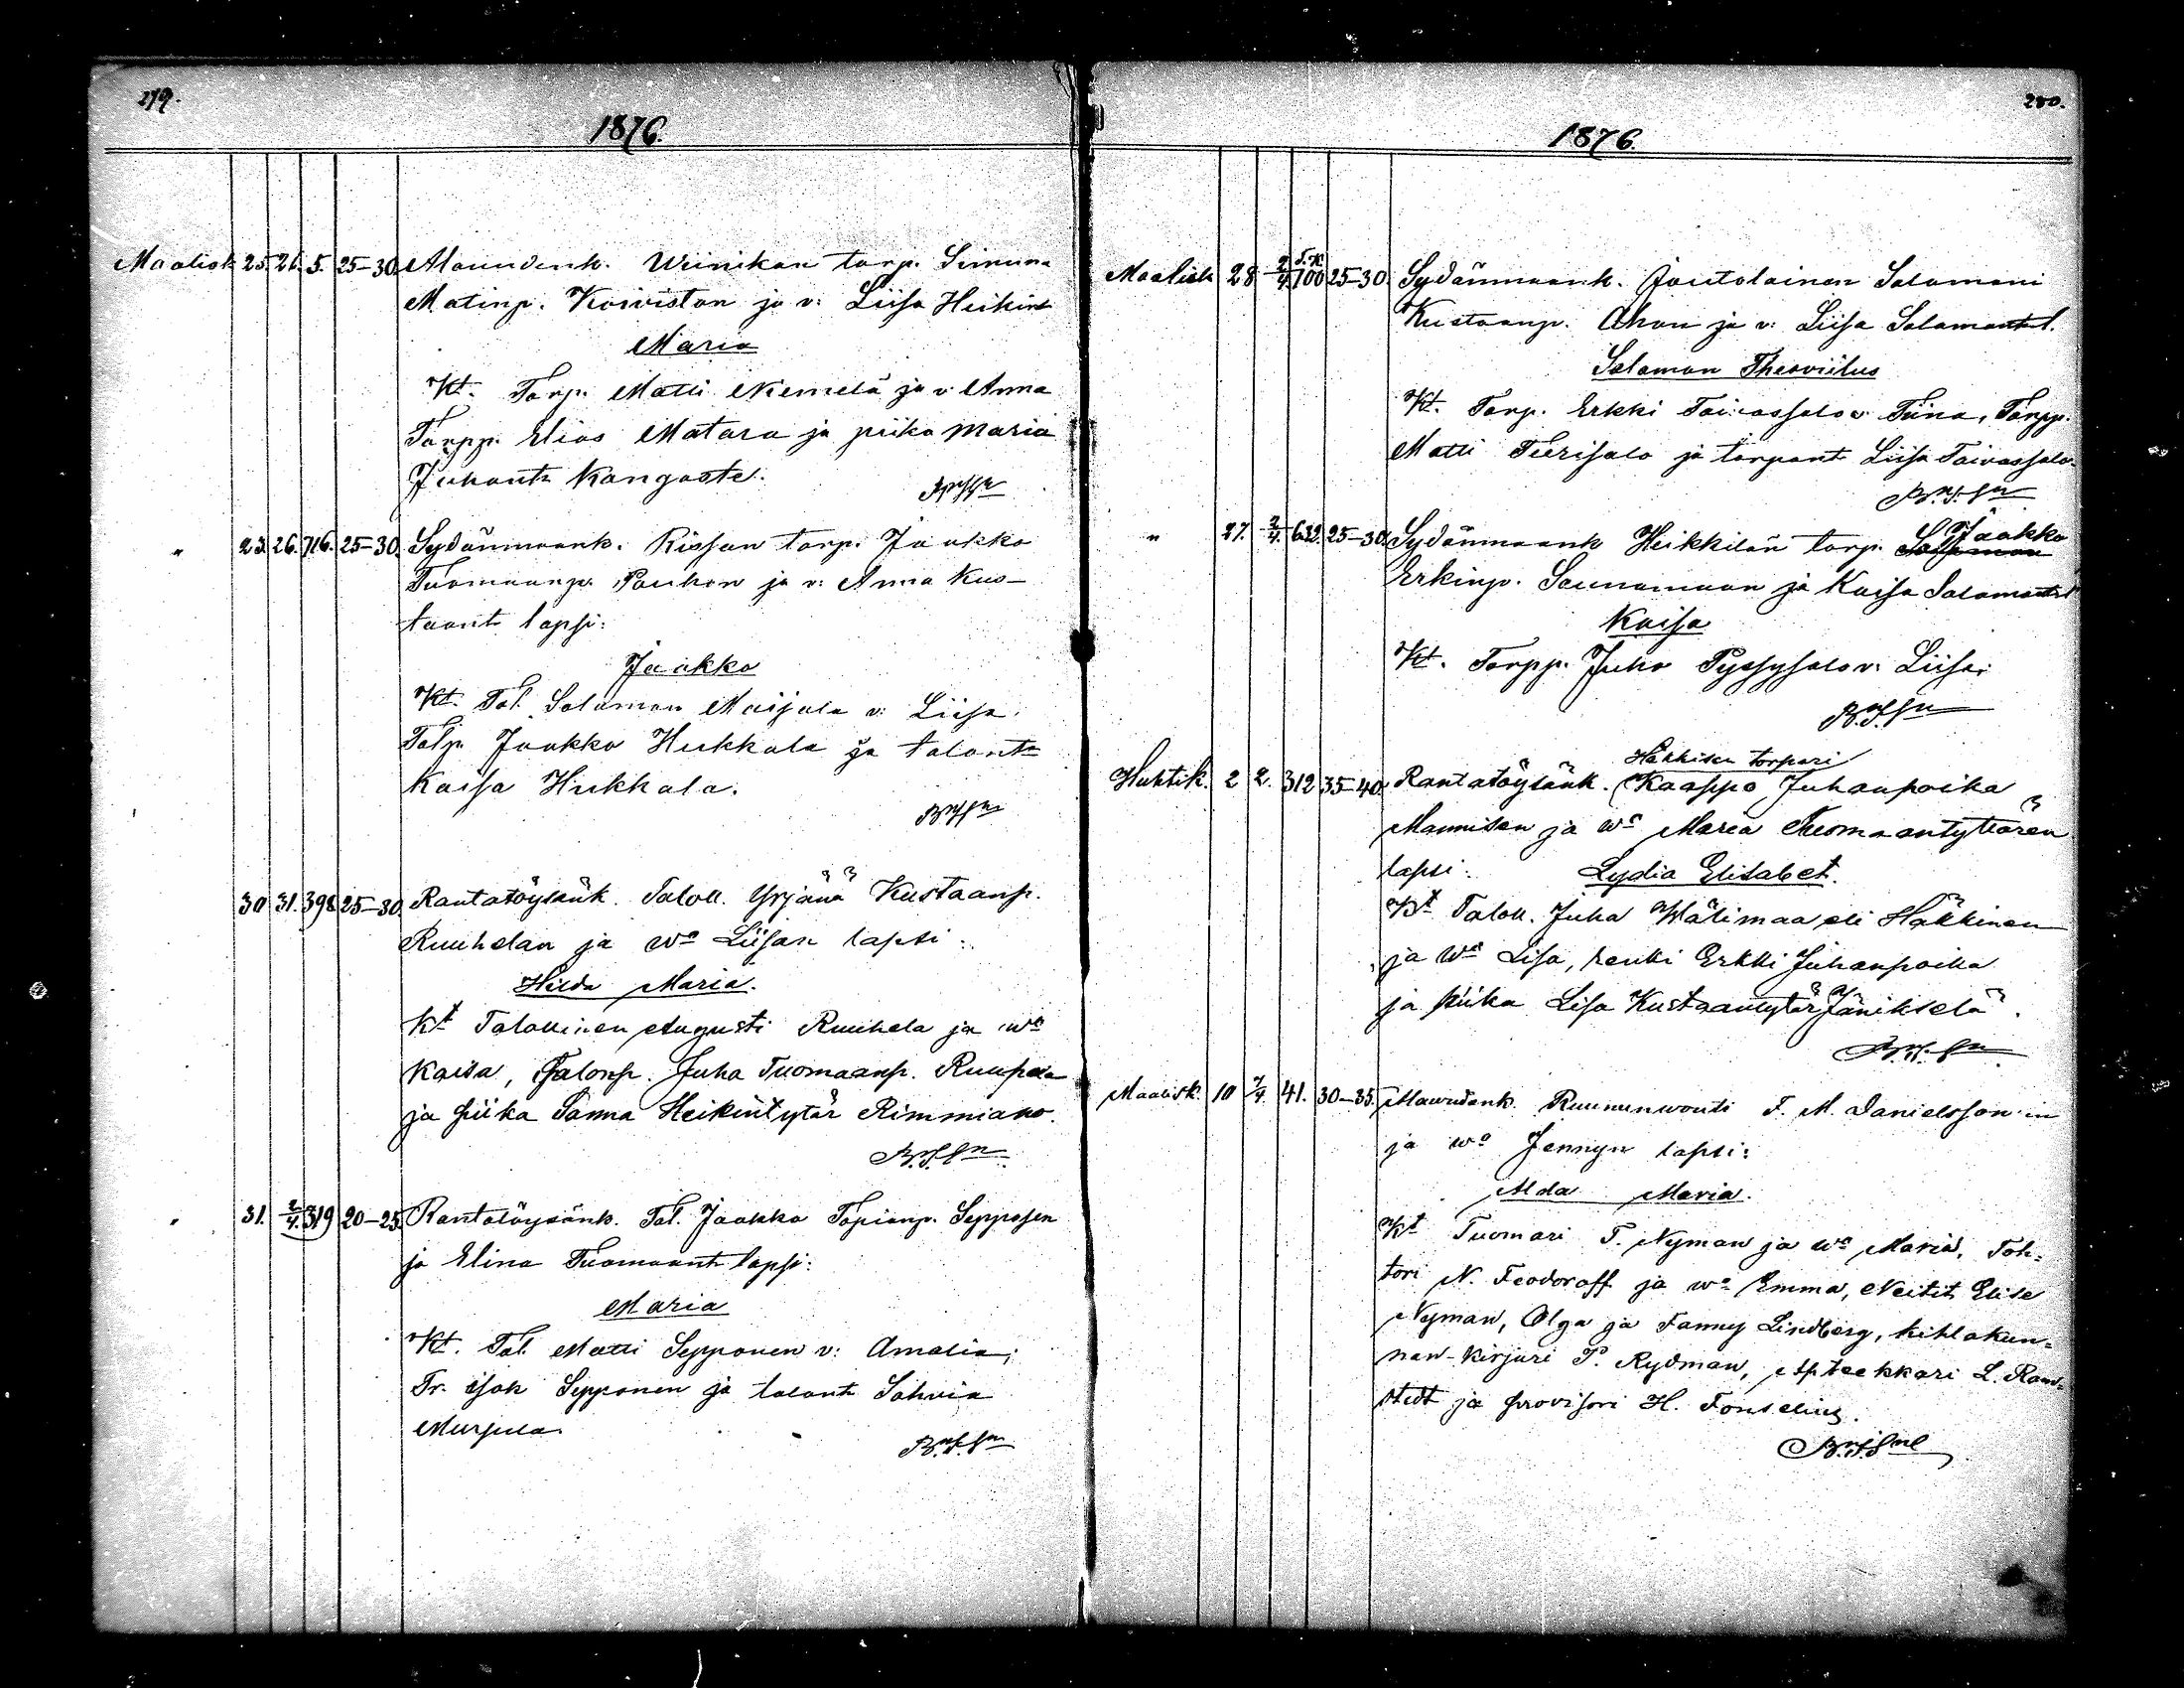 279.
1876.
Maalisk 25. 26. 5. 25-30. Alavudenk. Weinikan torp. Simuna
Matinp. Koiviston ja v: Liisa Heikint
Maria
Kt. Torp. Matti Niemelä ja v: Anna
Torpp. Elias Matara ja piika Maria
Juhant: Kangaste.
" 23. 26. 716. 25-30. Sydänmaank. Rissan torp. Jaakko
Tuomaanp. Paukon ja v: Anna Kus-
taant: lapsi:
Jaakko
Kt. Tal. Salomon Maijala v: Liisa.
Talp. Jaakko Hukkala ja talont:
Kaisa Hukkala.
30 31. 398 25-30 Rantatöysänk. Taloll. Yrjänä Kustaanp.
Ruuhelan ja wa Liisan lapsi:
Hilda Maria.
Kt Talollinen Augusti Ruuhela ja wa
Kaisa, Talonp. Juha Tuomaanp. Ruupaa
ja piika Sanna Heikintytär Rimmiaho.
" 31. 2/4. 319 20-25. Rantatöysänk. Tal. Jaakko Tapianp. Sepposen
ja Elina Tuomaant: lapsi:
Maria
Kt. Tal. Matti Sepponen v: Amalia;
Tr. Isak Sepponen ja talont: Sohvia
280.
1876.
Maalisk 28 2/4. S.K. 100 25-30. Sydänmaank. Joutolainen Salomoni
Kustaanp. Ahon ja v: Liisa Salomont.
Salomon Theoviilus
Kt. Torp. Erkki Taivassalo v: Tiina, Torpp.
Matti Teerisalo ja torpant: Liisa Taivassalo.
" 27. 2/4. 632. 25-30. Sydänmaank Heikkilän torp. Jaakko
Erkinp. Saunamaan ja Kaisa Salomont:
Kaisa
Kt. Torpp. Juho Pyssysalo v: Liisa;
Häkkisen torpari
Huhtik. 2 2. 312 35-40. Rantatöysänk. (Kaappo Juhanpoika
Mannisen ja wa Maria Tuomaantyttären
lapsi: Lydia Elisabet.
Kt Taloll. Juha Wälimaa eli Häkkinen
ja wa Lisa, renki Erkki Juhanpoika
ja piika Lisa Kustaantytär Jänikselä.
Maalisk. 10 7/4. 41. 30-35. Alawudenk. Ruununwouti F. M. Danielsson'in
ja wa Jennyn lapsi:
Alda Maria.
Kt Tuomari T. Nyman ja wa Maria, Toh-
tori N. Feodoroff ja wa Emma, Neitit Elise
Nyman, Olga ja Fanny Lindberg, kihlakun-
nan-kirjuri P. Rydman, Apteekkari L. Ram-
stedt ja provisori H. Fonselius.